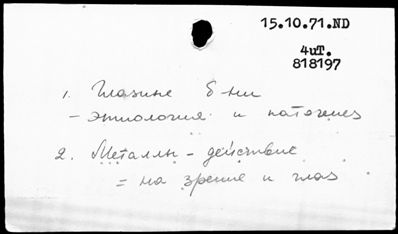 15.10.71.ND
4иТ.
818197
1. Глазные б-ни
- этиология и патогенез
2. Металлы - действие
= на зрение и глаз